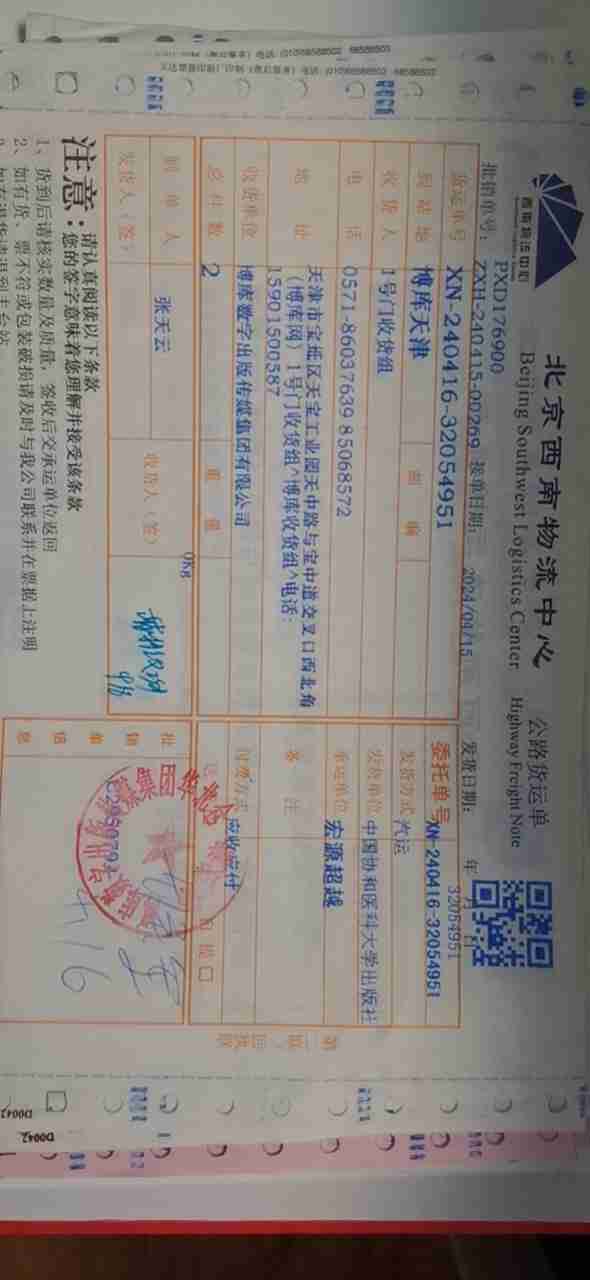 西南物流中心
北京西南物流中心
Beijing Southwest Logistics Center
公路货运单
Highway Freight Note
PXD176900
批销单号: ZXH-240415-00269 接单日期: 2024/04/15 发货日期: 年 月 日
32054951
货运单号 XN-240416-32054951 委托单号 XN-240416-32054951
到站地 博库天津 邮编 发货方式 汽运
收货人 1号门收货组 发货单位 中国协和医科大学出版社
电话 0571-86037639 85068572 承运单位 宏源超越
地址 天津市宝坻区天宝工业园天中路与宝中道交叉口西北角
(博库网)1号门收货组^博库收货组^电话:
15901500587
备注
收货单位 博库数字出版传媒集团有限公司 付费方式 应收应付
总件数 2 重量 0Kg
制单人 张天云 收货人(签)
发货人(签)
批销单信息
4/16
注意:
请认真阅读以下条款
您的签字意味着您理解并接受该条款
1、货到后请核实数量及质量,签收后交承运单位返回
2、如有货、票不符或包装破损请及时与我公司联系并在票据上注明
D0042
D0042